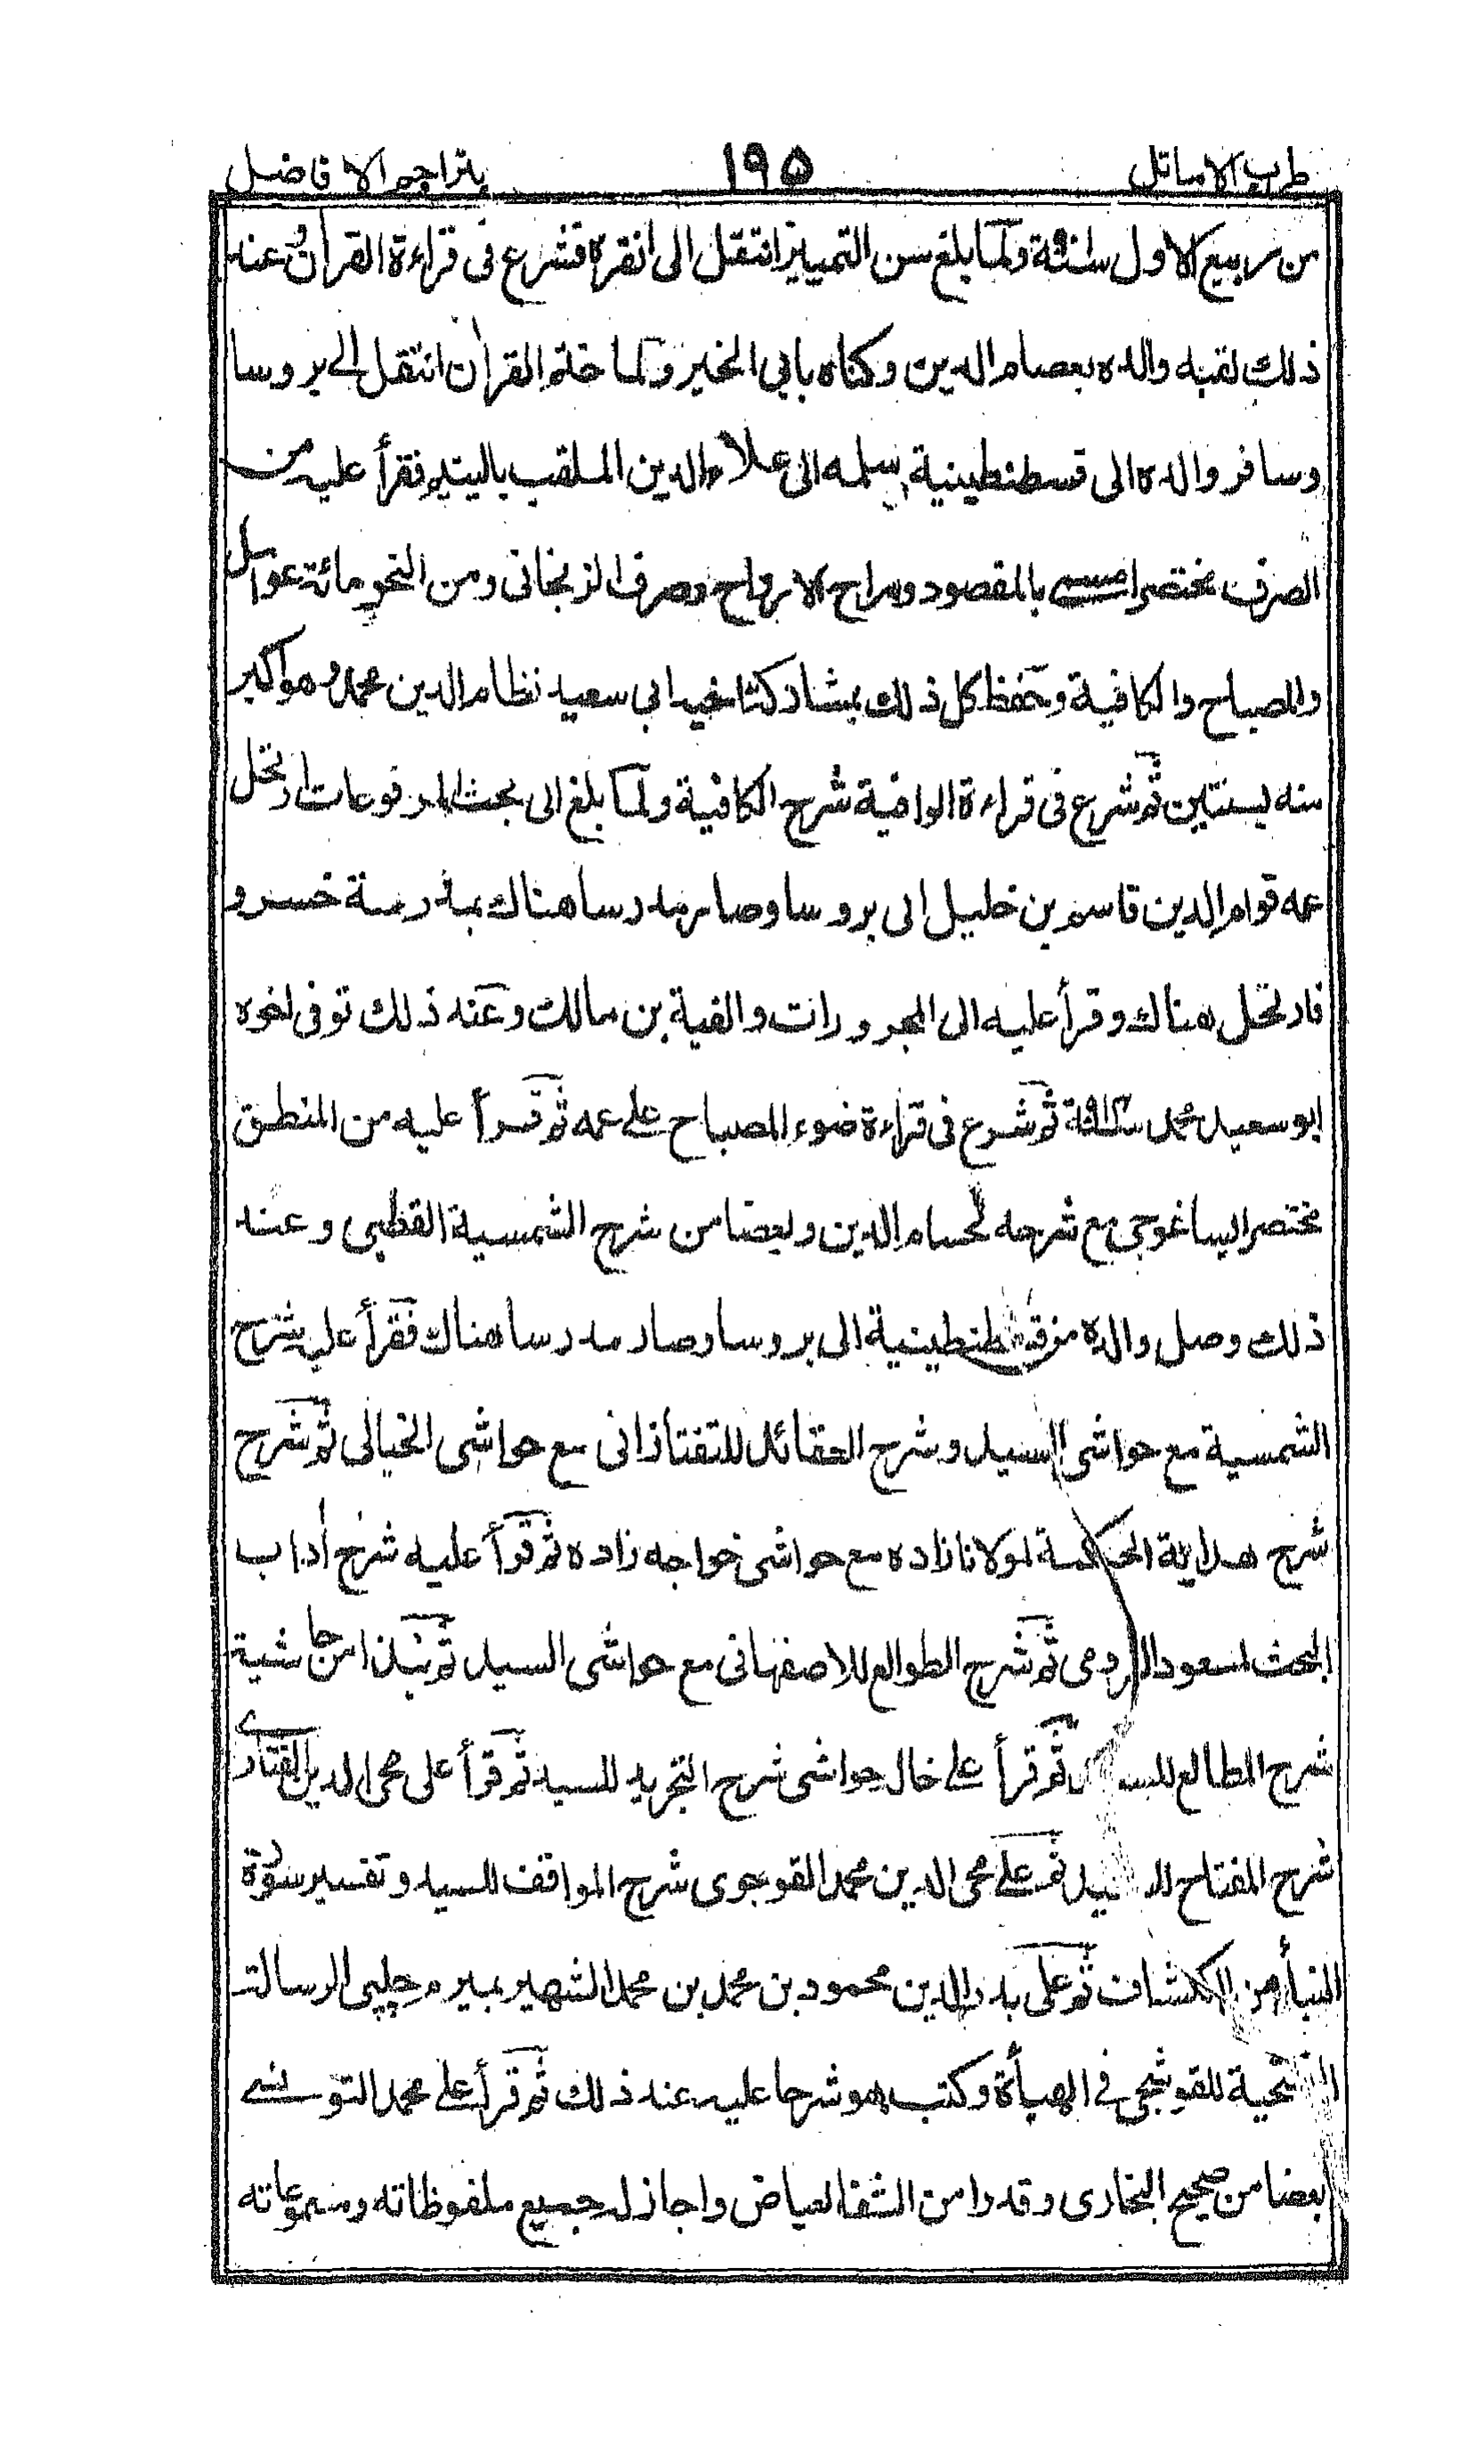 طرب الاماثل ١٩٥ بتراجم الافاضل
من ربيع الاول سنة ٩٠١ ولما بلغ سن التمييز انتقل الى انقرة فشرع فى قراءة القرآن وعند
ذلك لقبه والده بعصام الدين وكناه بابي الخير ولما ختم القرآن انتقل الى بروسا
وسافر والده الى قسطنطينية سلمه الى علاء الدين الملقب باليتيم فقرأ عليه من
الصرف مختصرا مسمى بالمقصود ومراح الارواح وصرف الزنجانى ومن النحو مائة عوامل
والمصباح والكافية وحفظ كل ذلك بمشاركة اخيه ابى سعيد نظام الدين محمد وهو اكبر
منه بسنتين ثم شرع فى قراءة الوافية شرح الكافية ولما بلغ الى بحث المرفوعات ارتحل
عمه قوام الدين قاسم بن خليل الى بروسا وصار مدرسا هناك بمدرسة خسرو
فارتحل هناك وقرأ عليه الى المجرورات والفية بن مالك وعند ذلك توفى اخوه
ابو سعيد محمد سنة ثم شرع فى قراءة ضوء المصباح على عمه ثم قرأ عليه من المنطق
مختصر ايساغوجى مع شرحه لحسام الدين وبعضا من شرح الشمسية القطبى وعند
ذلك وصل والده من قسطنطينية الى بروسا وصار مدرسا هناك فقرأ عليه شرح
الشمسية مع حواشى السيد وشرح العقائد للتفتازانى مع حواشى الخيالى ثم شرح
شرح هداية الحكمة لمولانا زاده مع حواشى خواجه زاده ثم قرأ عليه شرح آداب
البحث لمسعود الرومى ثم شرح الطوالع للاصفهانى مع حواشى السيد ثم نبذا من حاشية
شرح المطالع للسيد ثم قرأ على خال حواشى شرح التجريد للسيد ثم قرأ على محى الدين الفنارى
شرح المفتاح للسيد ثم على محى الدين محمد القوجوى شرح المواقف للسيد وتفسير سورة
النبأ من الكشاف ثم على بدر الدين محمود بن محمد بن محمد الشهير بميرم چلپى الرسالة
الفتحية للقوشجى فى الهيأة وكتب هو شرحا عليه عند ذلك ثم قرأ على محمد التونسى
بعضا من صحيح البخارى وقدرا من الشفا لعياض واجاز له جميع ملفوظاته ومسموعاته